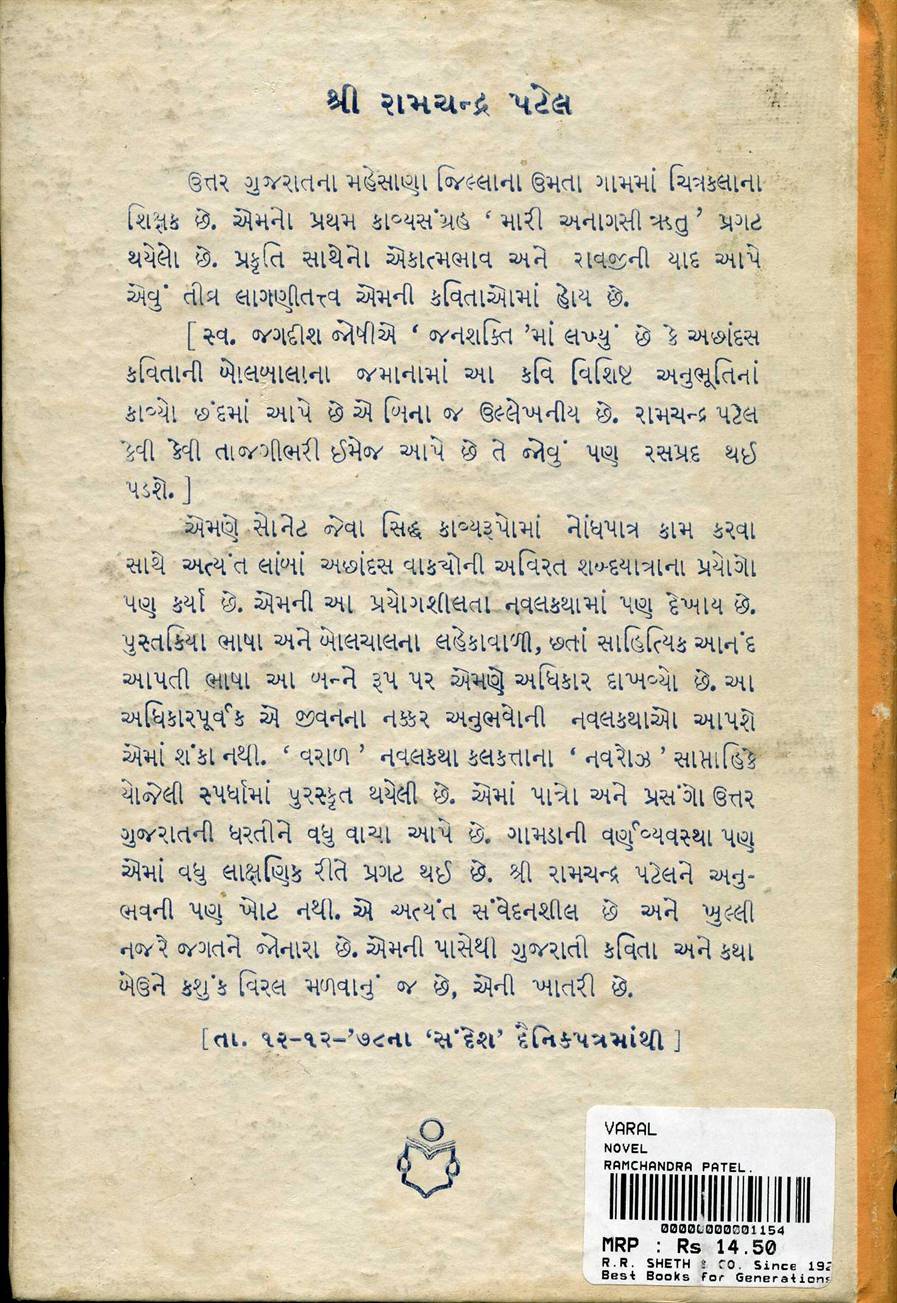 શ્રી રામચન્દ્ર પટેલ
ઉત્તર ગુજરાતના મહેસાણા જિલ્લાના ઉમતા ગામમાં ચિત્રકલાના
શિક્ષક છે. એમનો પ્રથમ કાવ્યસંગ્રહ ‘ મારી અનાગસી ઋતુ ’ પ્રગટ
થયેલો છે. પ્રકૃતિ સાથેનો એકાત્મભાવ અને રાવજીની યાદ આપે
એવું તીવ્ર લાગણીતત્ત્વ એમની કવિતાઓમાં હોય છે.
[ સ્વ. જગદીશ જોષીએ ‘ જનશક્તિ ’માં લખ્યું છે કે અછાંદસ
કવિતાની બોલબાલાના જમાનામાં આ કવિ વિશિષ્ટ અનુભૂતિનાં
કાવ્યો છંદમાં આપે છે એ બિના જ ઉલ્લેખનીય છે. રામચન્દ્ર પટેલ
કેવી કેવી તાજગીભરી ઈમેજ આપે છે તે જોવું પણ રસપ્રદ થઈ
પડશે. ]
એમણે સોનેટ જેવા સિદ્ધ કાવ્યરૂપોમાં નોંધપાત્ર કામ કરવા
સાથે અત્યંત લાંબાં અછાંદસ વાક્યોની અવિરત શબ્દયાત્રાના પ્રયોગો
પણ કર્યા છે. એમની આ પ્રયોગશીલતા નવલકથામાં પણ દેખાય છે.
પુસ્તકિયા ભાષા અને બોલચાલના લહેકાવાળી, છતાં સાહિત્યિક આનંદ
આપતી ભાષા આ બન્ને રૂપ પર એમણે અધિકાર દાખવ્યો છે. આ
અધિકારપૂર્વક એ જીવનના નક્કર અનુભવોની નવલકથાઓ આપશે
એમાં શંકા નથી. ‘ વરાળ ’ નવલકથા કલકત્તાના ‘ નવરોઝ ’ સાપ્તાહિકે
યોજેલી સ્પર્ધામાં પુરસ્કૃત થયેલી છે. એમાં પાત્રો અને પ્રસંગો ઉત્તર
ગુજરાતની ધરતીને વધુ વાચા આપે છે. ગામડાની વર્ણવ્યવસ્થા પણ
એમાં વધુ લાક્ષણિક રીતે પ્રગટ થઈ છે. શ્રી રામચન્દ્ર પટેલને અનુ-
ભવની પણ ખોટ નથી. એ અત્યંત સંવેદનશીલ છે અને ખુલ્લી
નજરે જગતને જોનારા છે. એમની પાસેથી ગુજરાતી કવિતા અને કથા
બેઉને કશુંક વિરલ મળવાનું જ છે, એની ખાતરી છે.
[ તા. ૧૨–૧૨–’૭૮ના ‘સંદેશ’ દૈનિકપત્રમાંથી ]
VARAL
NOVEL
RAMCHANDRA PATEL.
00000000001154
MRP : Rs 14.50
R.R. SHETH & CO. Since 192
Best Books for Generations